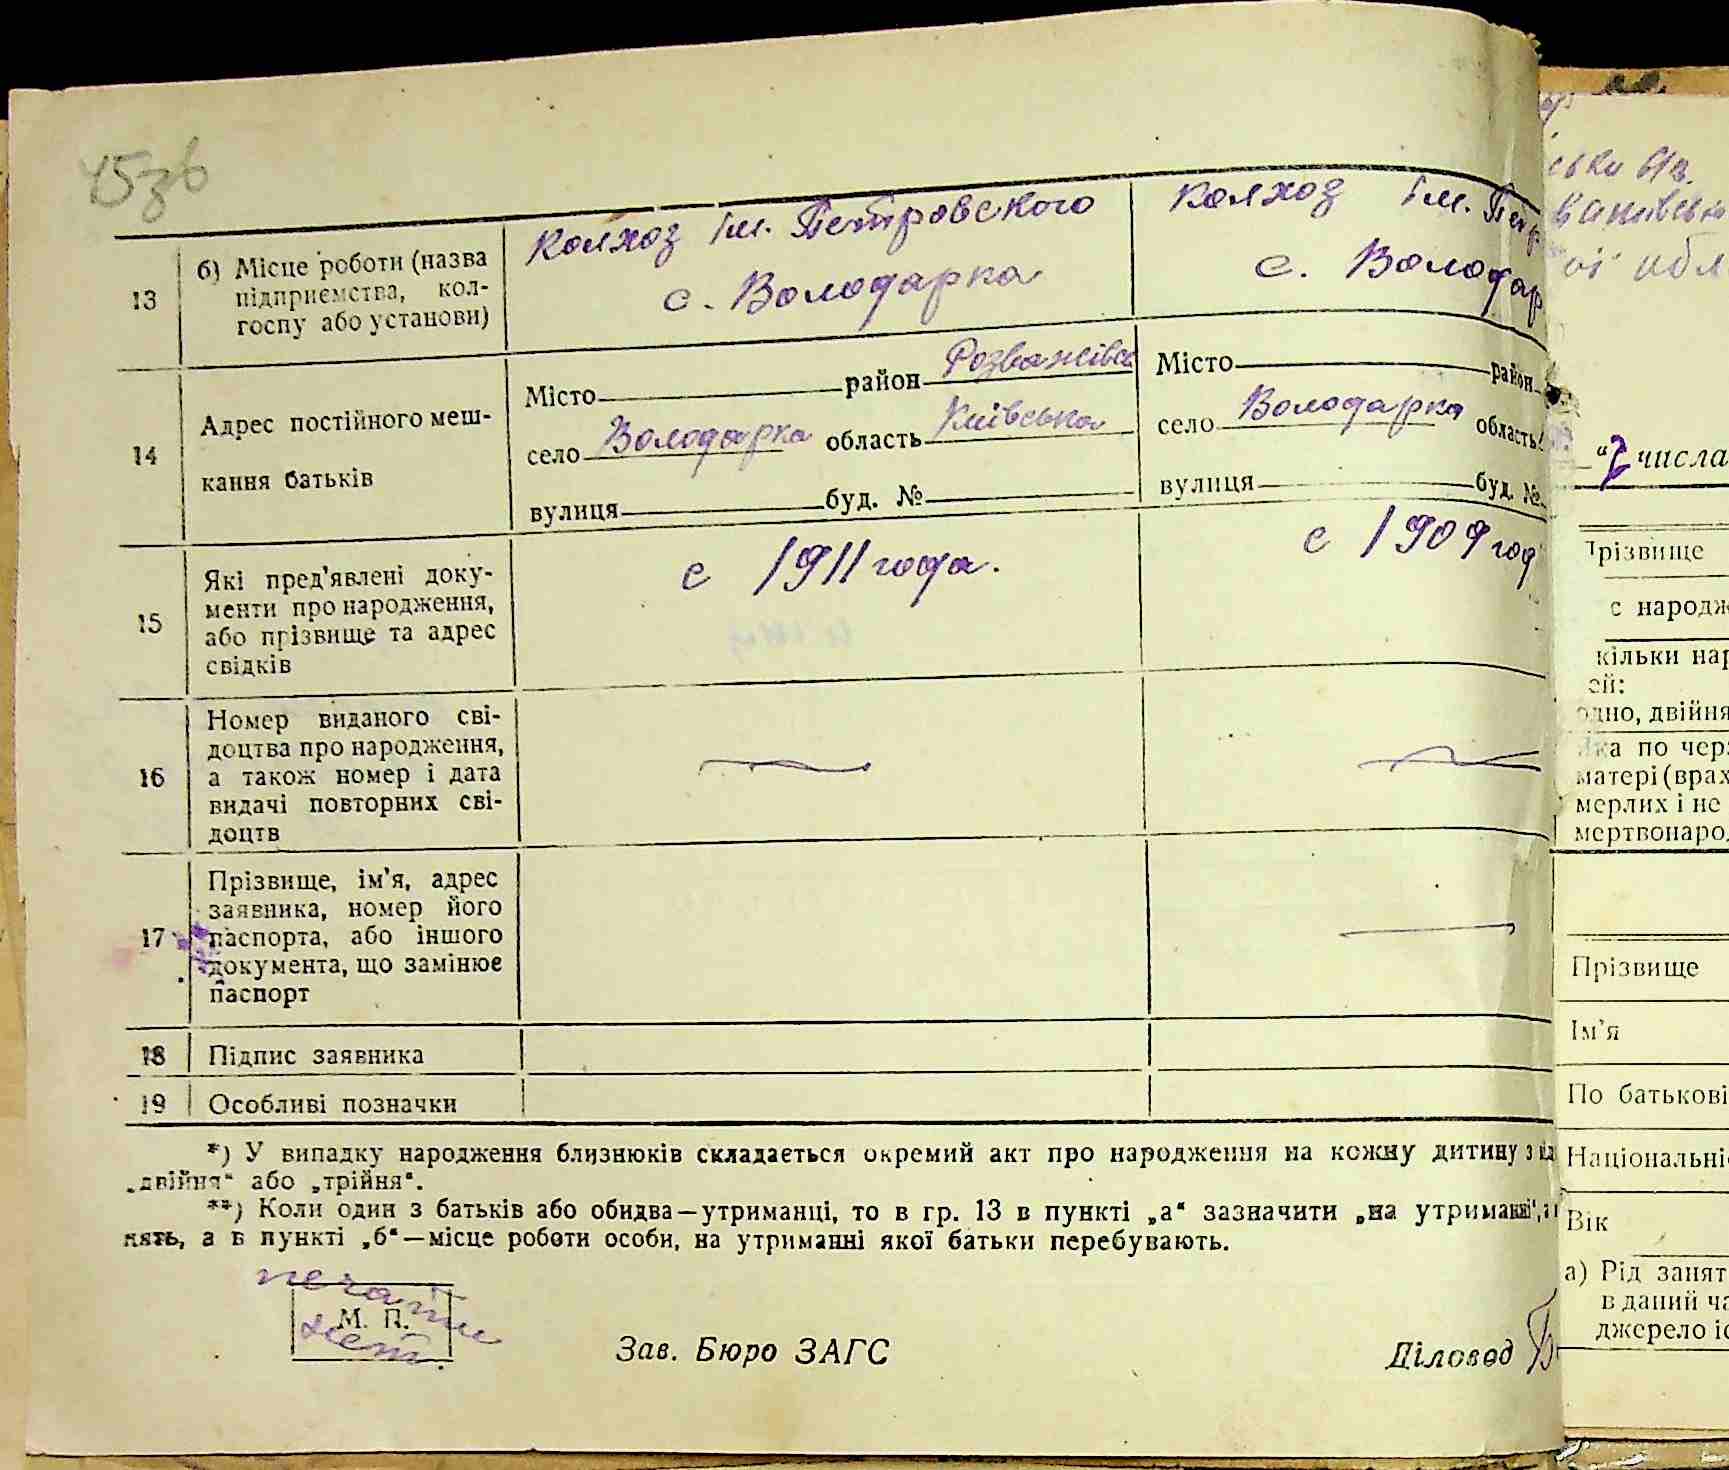 45зв
колхоз Ім. Петровского
с. Володарка
колхоз Ім. Петр
с. Володар
13
б) Місце роботи (назва
підприємства, кол-
госпу або установи)
14
Адрес постійного меш-
кання батьків
Місто район Розважівсь
село Володарка область Київська
вулиця буд. №
Місто район
село Володарка область
вулиця буд. №
15
Які пред'явлені доку-
менти про народження,
або прізвище та адрес
свідків
с 1911 года.
с 1909 год
16
Номер виданого сві-
доцтва про народження,
а також номер і дата
видачі повторних сві-
доцтв
17
Прізвище, ім'я, адрес
заявника, номер його
паспорта, або іншого
документа, що замінює
паспорт
18 Підпис заявника
19 Особливі позначки
*) У випадку народження близнюків складається окремий акт про народження на кожну дитину з
„двійня“ або „трійня“.
**) Коли один з батьків або обидва—утриманці, то в гр. 13 в пункті „а“ зазначити „на утриманні“,
нять, а в пункті „б“—місце роботи особи, на утриманні якої батьки перебувають.
печати
М. П.
нет.
Зав. Бюро ЗАГС
Діловод
ої обл
числа
Прізвище
с народж
кільки нар
ей:
одно, двійня
Яка по чер
матері (врах
мерлих і не
мертвонарод
Прізвище
Ім'я
По батькові
Національні
Вік
а) Рід занят
в даний ча
джерело іс